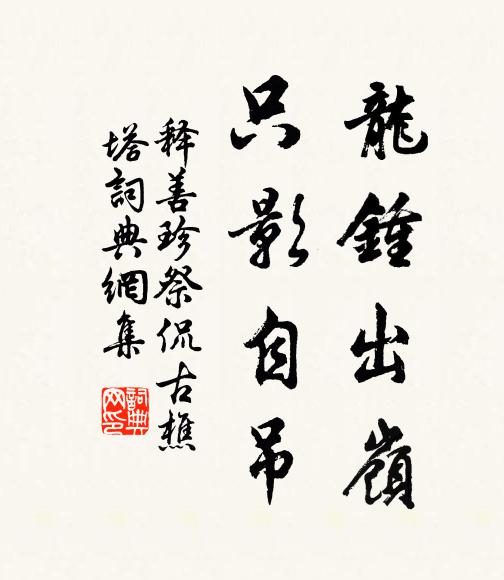 龍鍾出嶺
只影自吊
释善珍祭侃古樵
塔詞典網集
詞典網印